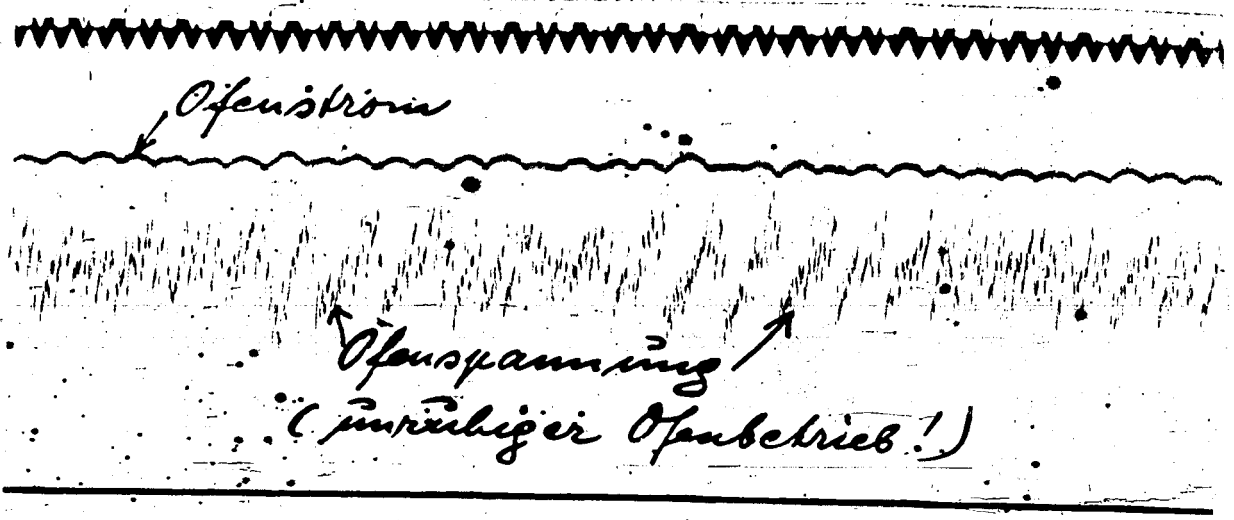 Ofenstrom
Ofenspannung
(unruhiger Ofenbetrieb!)